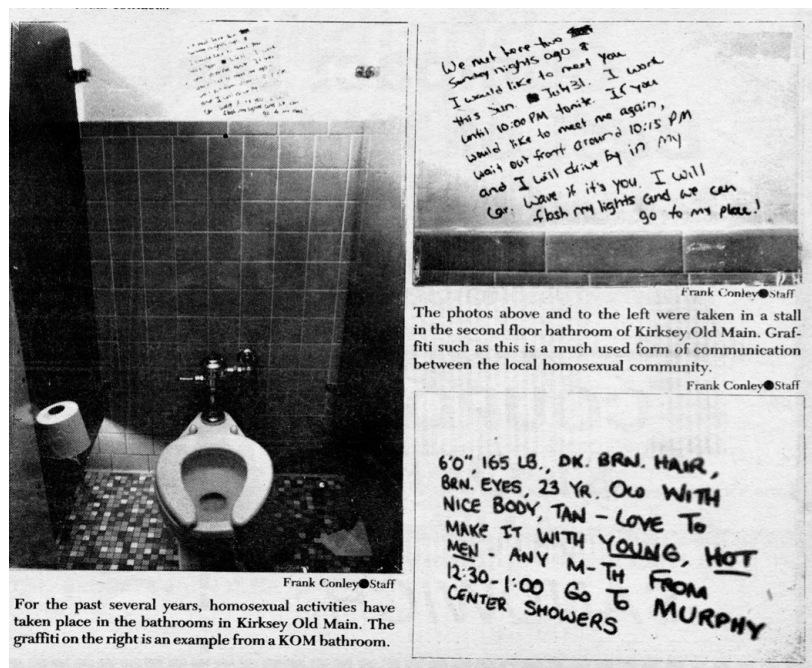 Frank Conley●Staff
For the past several years, homosexual activities have
taken place in the bathrooms in Kirksey Old Main. The
graffiti on the right is an example from a KOM bathroom.
We met here two
Sunday nights ago &
I would like to meet you
this Sun. July 31. I work
until 10:00 PM tonite. If you
would like to meet me again,
wait out front around 10:15 PM
and I will drive by in my
car. Wave if it's you. I will
flash my lights and we can
go to my place!
Frank Conley●Staff
The photos above and to the left were taken in a stall
in the second floor bathroom of Kirksey Old Main. Graf-
fiti such as this is a much used form of communication
between the local homosexual community.
Frank Conley●Staff
6'0", 165 LB., DK. BRN. HAIR,
BRN. EYES, 23 YR. OLD WITH
NICE BODY, TAN - LOVE TO
MAKE IT WITH YOUNG, HOT
MEN - ANY M-TH FROM
12:30-1:00 GO TO MURPHY
CENTER SHOWERS